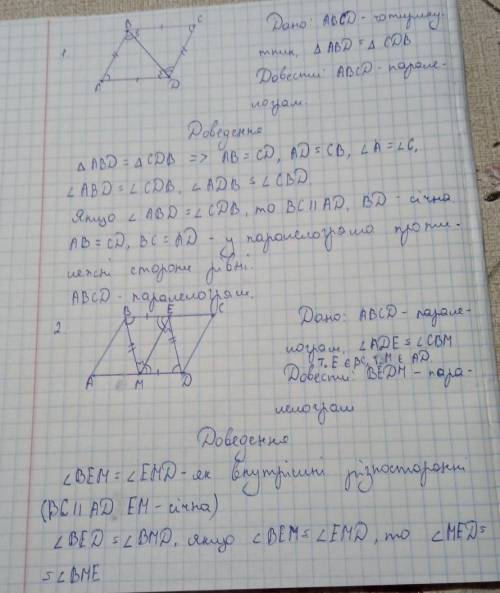 1
B
C
A
D
Дано: ABCD - чотирику-
тник, △ ABD = △ CDB
Довести: ABCD - парале-
лограм.
Доведення
△ ABD = △ CDB => AB = CD, AD = CB, ∠A = ∠C,
∠ ABD = ∠ CDB, ∠ ADB = ∠ CBD.
Якщо ∠ ABD = ∠ CDB, то BC || AD, BD - січна
AB = CD, BC = AD - у паралелограма проти-
лежні сторони рівні.
ABCD - паралелограм.
2.
B
E
C
A
M
D
Дано: ABCD - парале-
лограм, ∠ ADE = ∠ CBM
т. E ∈ BC, т. M ∈ AD
Довести: BEDM - пара-
лелограм
Доведення
∠ BEM = ∠ EMD - як внутрішні різносторонні
(BC || AD, EM - січна)
∠ BED = ∠ BMD, якщо ∠ BEM = ∠ EMD, то ∠ MED =
= ∠ BME